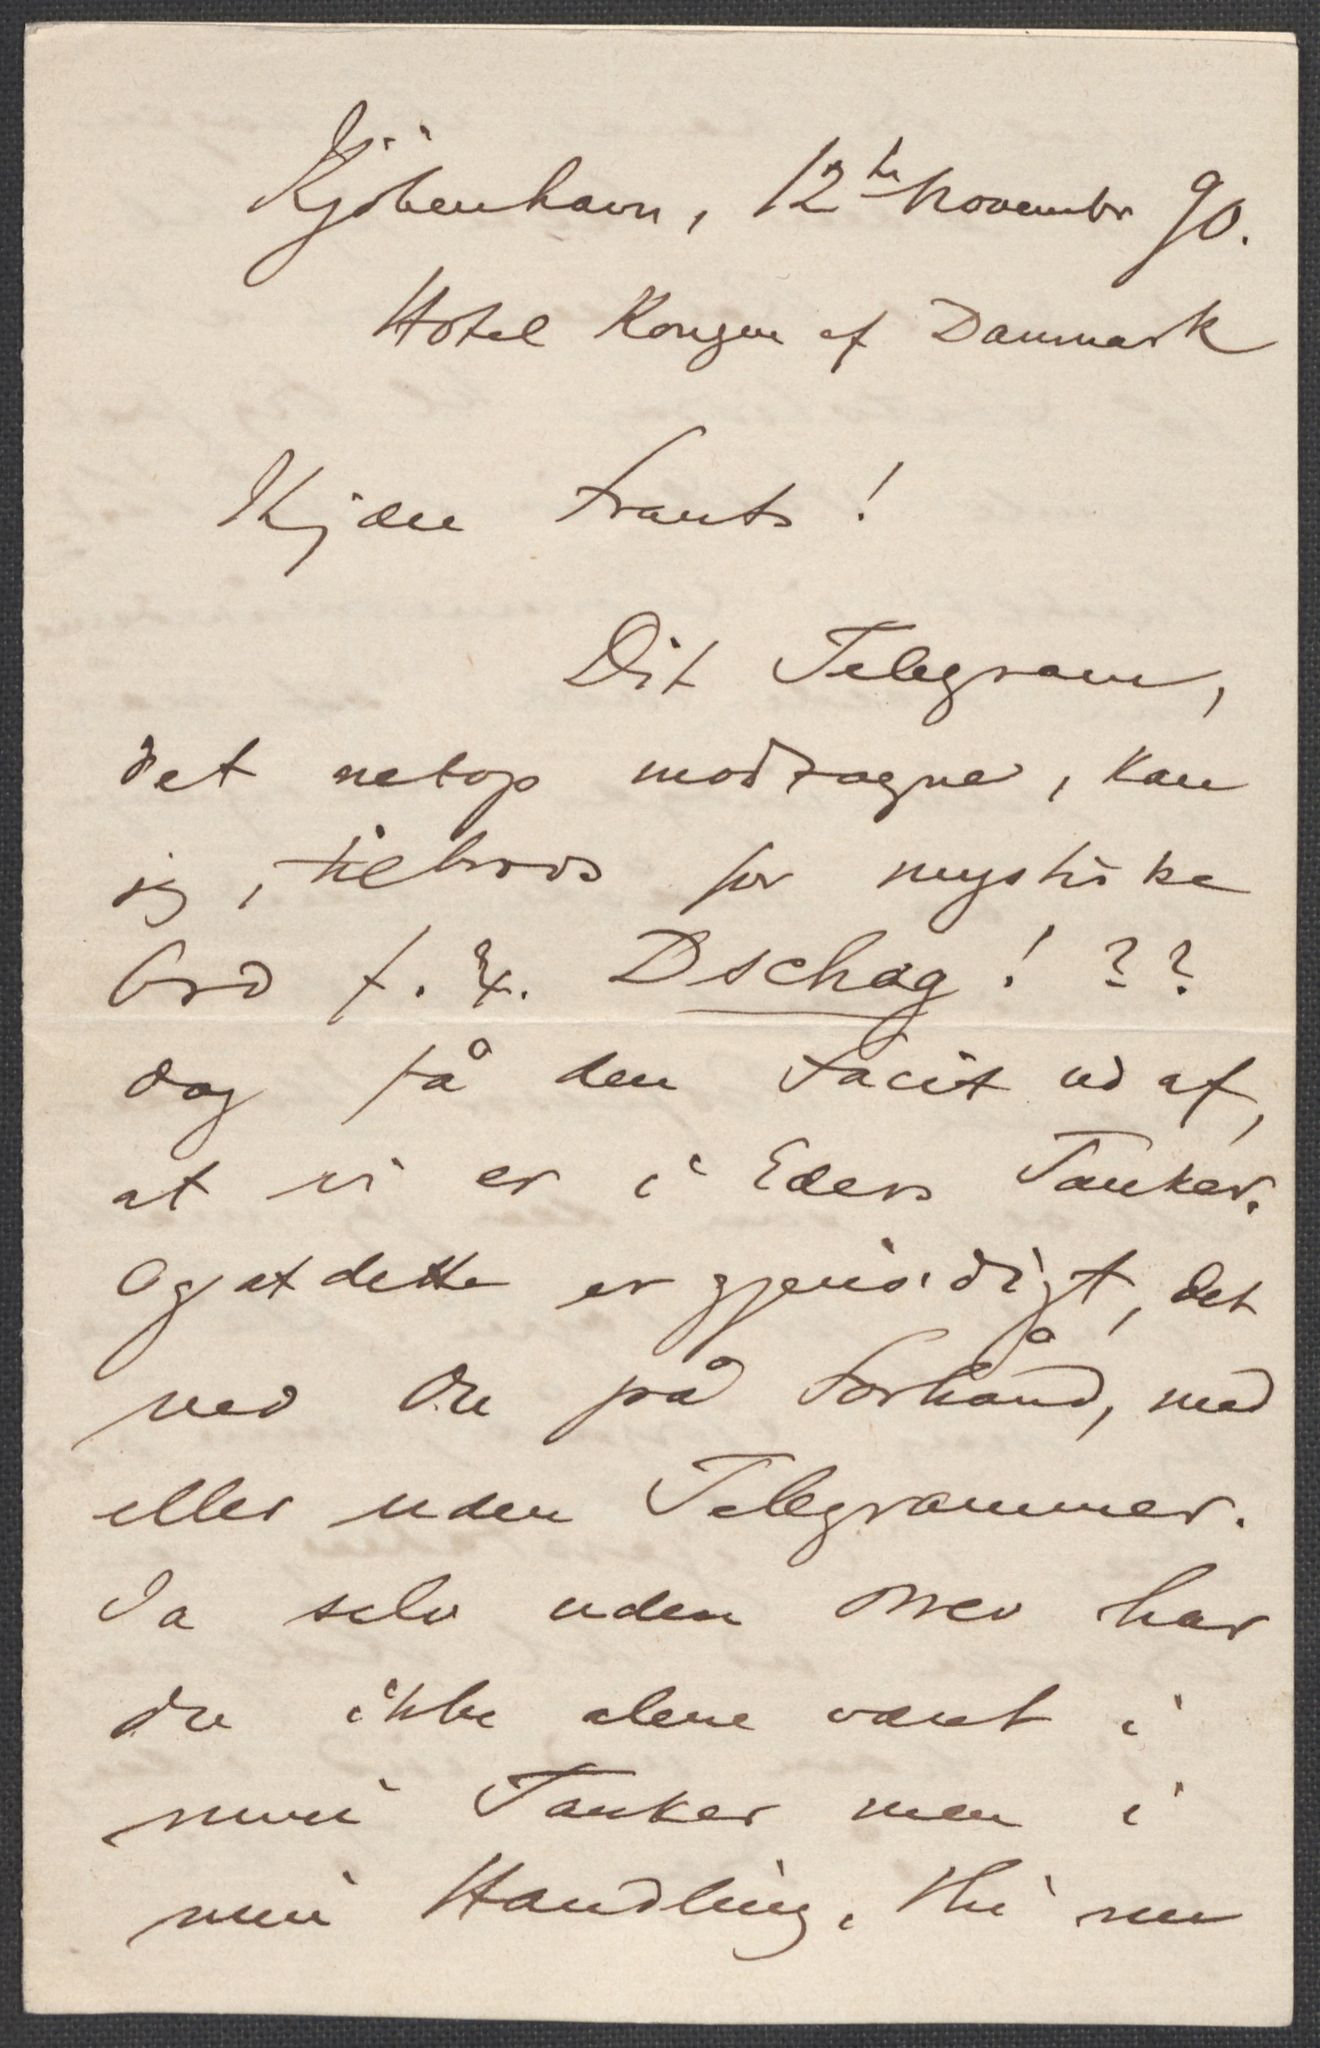 Kjöbenhavn, 12te November 90.
Hotel Kongen af Danmark
Kjære Frants!
Dit Telegram,
det netop modtagne, kan
jeg, tiltrods for mystiske
Ord f. Ex. Dschag! ??
dog få den Facit ud af,
at vi er i Eders Tanker.
Og at dette er gjensidigt, det
ved Du på Forhånd, med
eller uden Telegrammer.
Ja selv uden Brev har
Du ikke alene været i
mine Tanker men i
min Handling. Thi nu